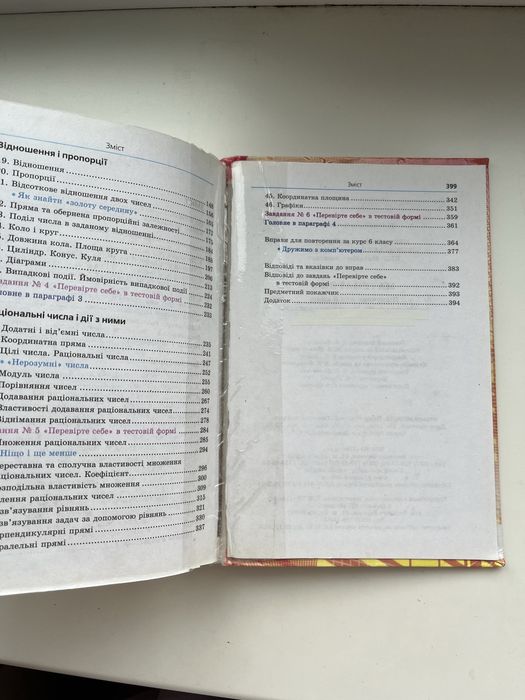 Зміст
Відношення і пропорції
9. Відношення 148
0. Пропорції
1. Відсоткове відношення двох чисел
* Як знайти «золоту середину»
2. Пряма та обернена пропорційні залежності
3. Поділ числа в заданому відношенні
Коло і круг
Довжина кола. Площа круга
Циліндр. Конус. Куля
Діаграми
Випадкові події. Ймовірність випадкової події 224
вдання № 4 «Перевірте себе» в тестовій формі 232
ловне в параграфі 3 233
ціональні числа і дії з ними
Додатні і від'ємні числа 235
Координатна пряма 241
Цілі числа. Раціональні числа 247
* «Нерозумні» числа 252
Модуль числа 255
Порівняння чисел 260
Додавання раціональних чисел 267
Властивості додавання раціональних чисел 274
Віднімання раціональних чисел 278
ання № 5 «Перевірте себе» в тестовій формі 284
Множення раціональних чисел 285
Ніщо і ще менше 294
ереставна та сполучна властивості множення
ціональних чисел. Коефіцієнт 296
озподільна властивість множення 300
лення раціональних чисел 309
зв'язування рівнянь 315
зв'язування задач за допомогою рівнянь 321
рпендикулярні прямі 330
ралельні прямі 337
Зміст 399
45. Координатна площина 342
46. Графіки 351
Завдання № 6 «Перевірте себе» в тестовій формі 359
Головне в параграфі 4 361
Вправи для повторення за курс 6 класу 364
* Дружимо з комп'ютером 377
Відповіді та вказівки до вправ 383
Відповіді до завдань «Перевірте себе»
в тестовій формі 392
Предметний покажчик 393
Додаток 394